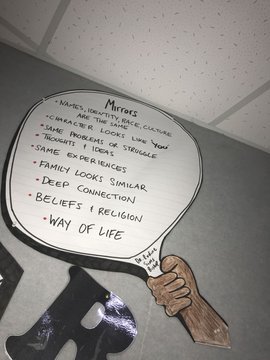 Mirrors
• NAMES, IDENTITY, RACE, CULTURE
ARE THE SAME
• CHARACTER LOOKS LIKE "YOU"
• SAME PROBLEMS OR STRUGGLE
• THOUGHTS + IDEAS
• SAME EXPERIENCES
• FAMILY LOOKS SIMILAR
• DEEP CONNECTION
• BELIEFS + RELIGION
• WAY OF LIFE
Dr. Rudine
Sims
Bishop